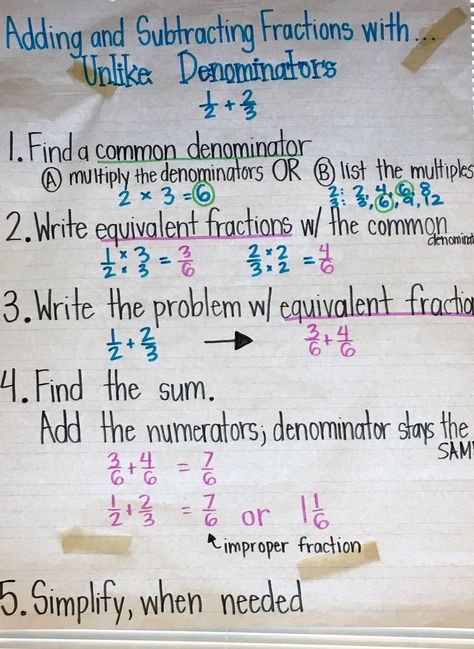 Adding and Subtracting Fractions with...
Unlike Denominators
1/2 + 2/3
1. Find a common denominator
Ⓐ multiply the denominators OR Ⓑ list the multiples
2 × 3 = 6 2: 2, 4, 6, 8
3: 3, 6, 9, 12
2. Write equivalent fractions w/ the common
denominat
1/2 × 3/3 = 3/6 2/3 × 2/2 = 4/6
3. Write the problem w/ equivalent fractio
1/2 + 2/3 → 3/6 + 4/6
4. Find the sum.
Add the numerators; denominator stays the
SAM
3/6 + 4/6 = 7/6
1/2 + 2/3 = 7/6 or 1 1/6
improper fraction
5. Simplify, when needed